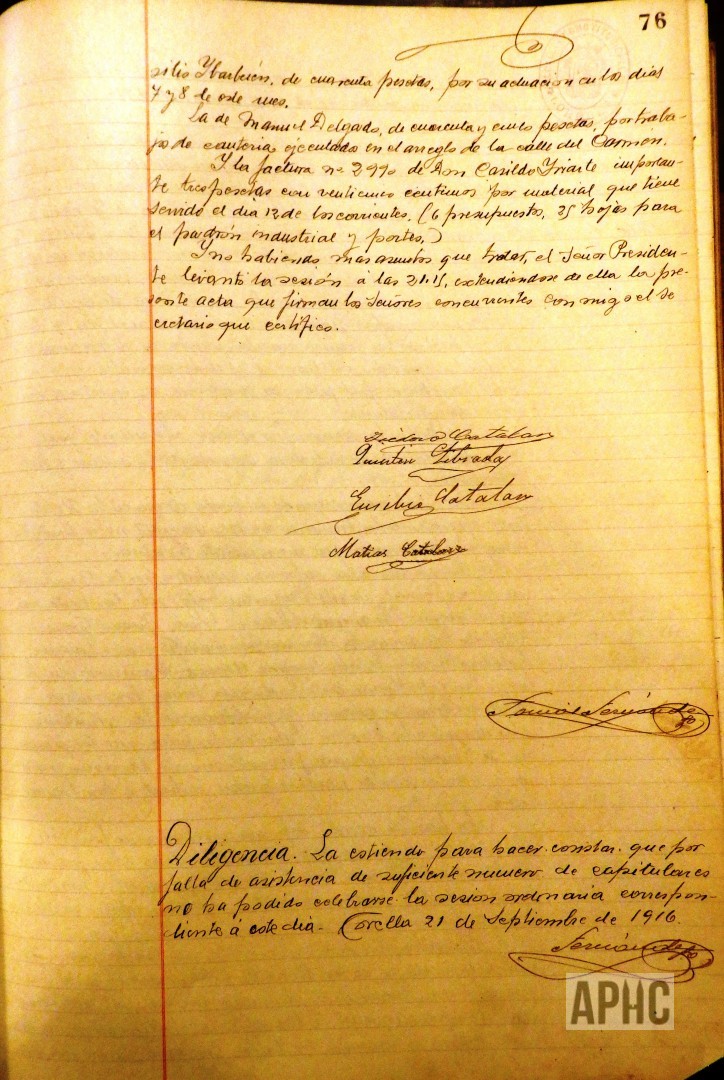 76
silio Ybarbuén, de cuarenta pesetas, por su actuacion en los dias
7 y 8 de este mes.
La de Manuel Delgado, de cuarenta y cinco pesetas, por traba-
jo de canteria ejecutado en el arreglo de la calle del Carmen.
Y la factura nº 2990 de Don Casildo Yriarte importan-
te tres pesetas con venticinco centimos por material que tiene
servido el dia 12 de los corrientes. (6 presupuestos, 25 hojas para
el padrón industrial y portes.)
Y no habiendo mas asuntos que tratar, el Señor Presiden-
te levantó la sesión á las 21.15, extendiendose de ella la pre-
sente acta que firman los Señores concurrentes conmigo el Se
cretario que certifico.
Isidoro Catalan
Quintin Librada
Eusebio Catalan
Matias Catalan
Tomás Fernández
Diligencia. La extiendo para hacer constar que por
falta de asistencia de suficiente numero de capitulares
no ha podido celebrarse la sesion ordinaria correspon-
diente á este dia. Corella 21 de Septiembre de 1916.
Fernández
APHC